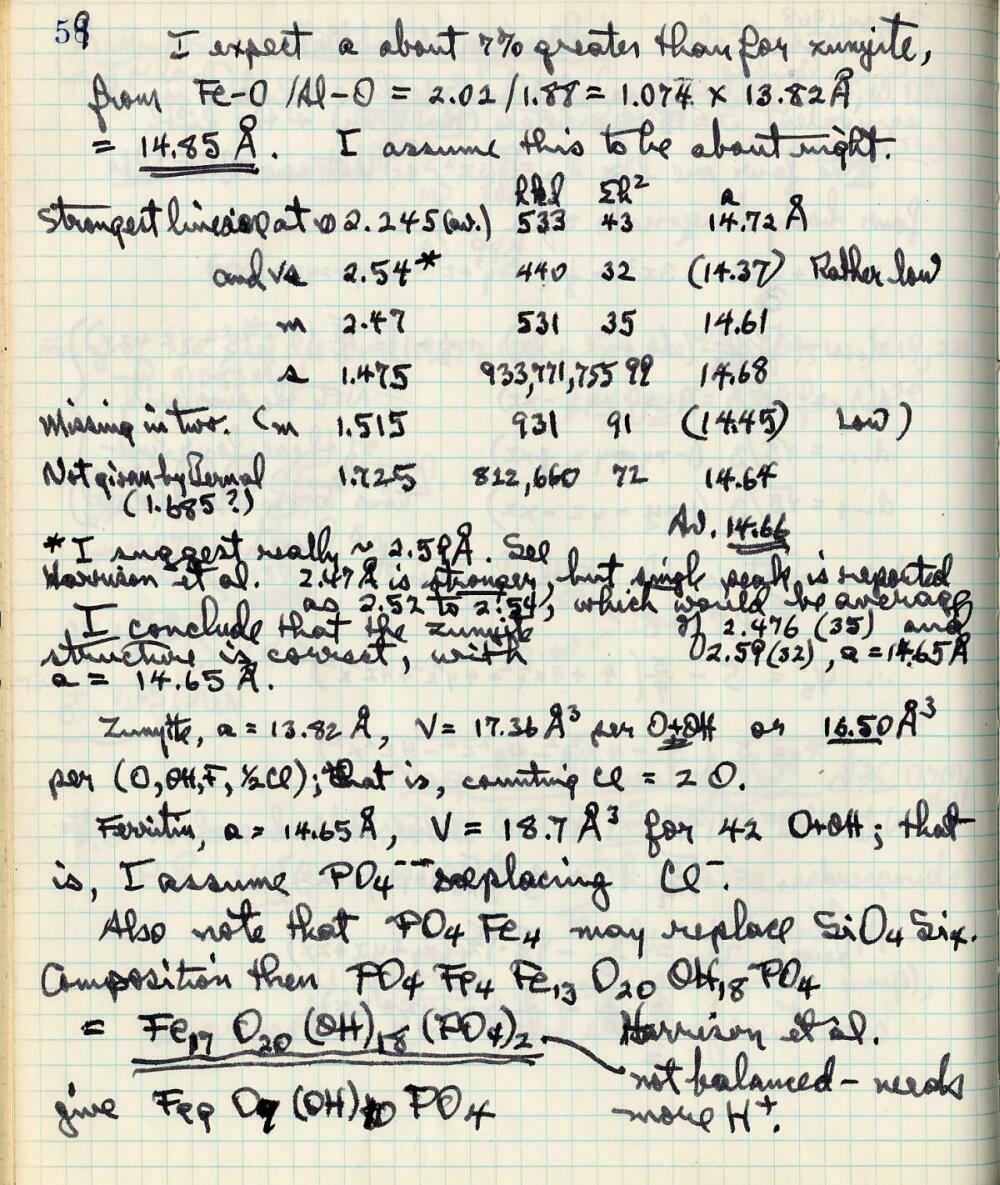 59 I expect a about 7% greater than for zunyite,
from Fe-O /Al-O = 2.02/1.88 = 1.074 x 13.82 Å
= 14.85 Å. I assume this to be about right.
hkl Σh² a
Strongest lines at 2.245 (av.) 533 43 14.72 Å
and vs 2.54* 440 32 (14.37) Rather low
m 2.47 531 35 14.61
s 1.475 933,771,755 99 14.68
Missing in two. (m 1.515 931 91 (14.45) Low)
Not given by Bernal 1.725 822,660 72 14.64
(1.685?)
Av. 14.66
* I suggest really ~ 2.59 Å. See
Harrison et al. 2.47 Å is stronger, but single peak is reported
as 2.52 to 2.54, which would be average
of 2.476 (35) and
2.59 (32), a = 14.65 Å
I conclude that the zunyite
structure is correct, with
a = 14.65 Å.
Zunyite, a = 13.82 Å, V = 17.36 Å³ per O+OH or 16.50 Å³
per (O, OH, F, ½Cl); that is, counting Cl = 2 O.
Ferritin, a = 14.65 Å, V = 18.7 Å³ for 42 O+OH; that
is, I assume PO4--- replacing Cl-.
Also note that PO4 Fe4 may replace SiO4 Si4.
Composition then PO4 Fe4 Fe13 O20 OH18 PO4
= Fe17 O20 (OH)18 (PO4)2. Harrison et al.
not balanced – needs
give Fe9 O9 (OH)10 PO4 more H+.